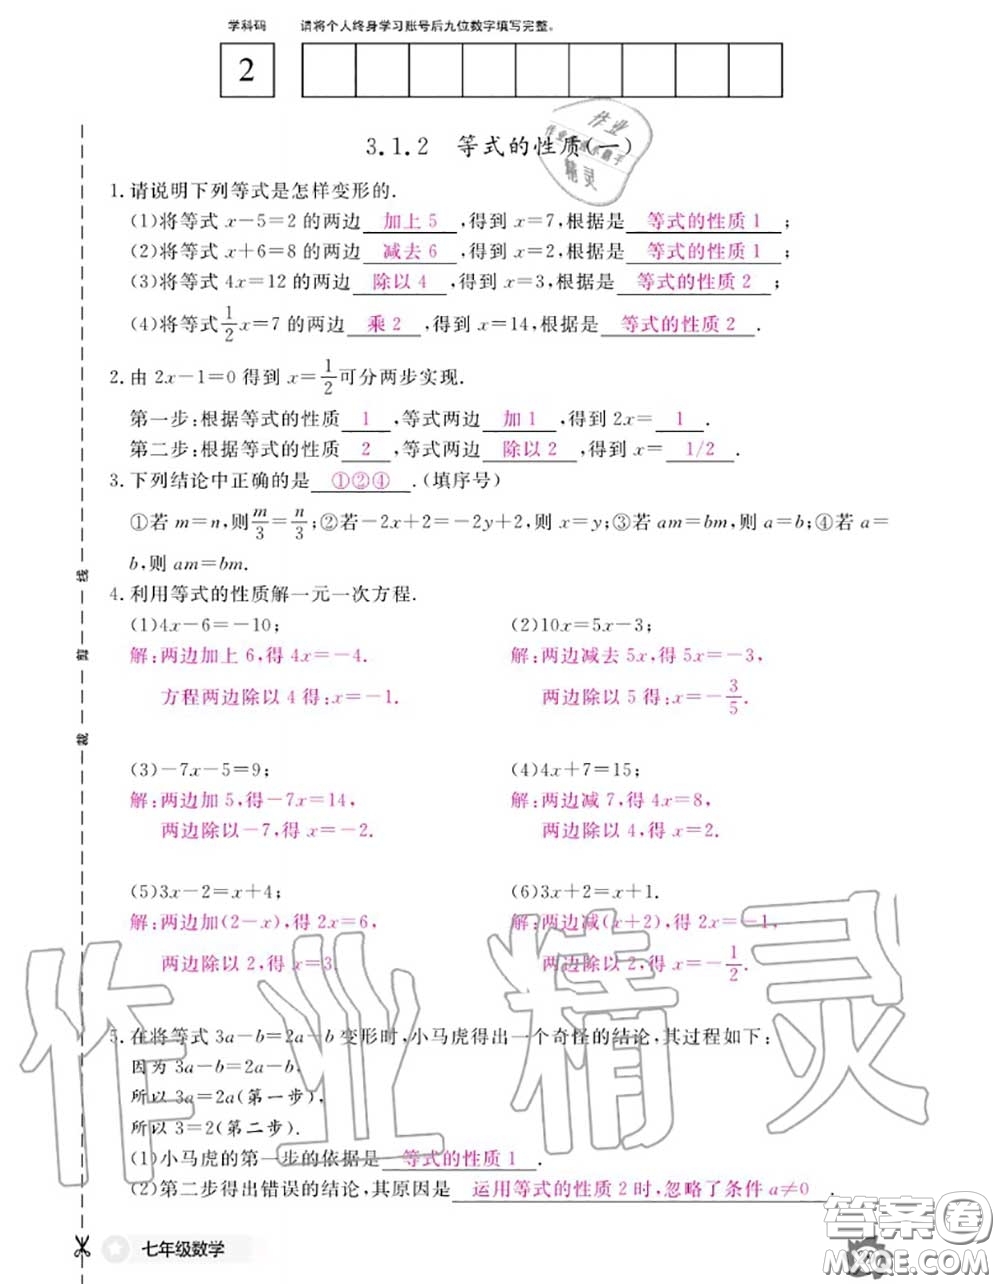 学科码 请将个人终身学习账号后九位数字填写完整。
2
3.1.2 等式的性质(一)
1.请说明下列等式是怎样变形的.
(1)将等式 x-5=2 的两边 加上 5 ,得到 x=7,根据是 等式的性质 1 ;
(2)将等式 x+6=8 的两边 减去 6 ,得到 x=2,根据是 等式的性质 1 ;
(3)将等式 4x=12 的两边 除以 4 ,得到 x=3,根据是 等式的性质 2 ;
(4)将等式 1/2 x=7 的两边 乘 2 ,得到 x=14,根据是 等式的性质 2 .
2.由 2x-1=0 得到 x=1/2 可分两步实现.
第一步:根据等式的性质 1 ,等式两边 加 1 ,得到 2x= 1 .
第二步:根据等式的性质 2 ,等式两边 除以 2 ,得到 x= 1/2 .
3.下列结论中正确的是 ①②④ .(填序号)
①若 m=n,则 m/3=n/3;②若-2x+2=-2y+2,则 x=y;③若 am=bm,则 a=b;④若 a=
b,则 am=bm.
4.利用等式的性质解一元一次方程.
(1)4x-6=-10; (2)10x=5x-3;
解:两边加上 6,得 4x=-4. 解:两边减去 5x,得 5x=-3,
方程两边除以 4 得:x=-1. 两边除以 5 得:x=-3/5.
(3)-7x-5=9; (4)4x+7=15;
解:两边加 5,得-7x=14, 解:两边减 7,得 4x=8,
两边除以-7,得 x=-2. 两边除以 4,得 x=2.
(5)3x-2=x+4; (6)3x+2=x+1.
解:两边加(2-x),得 2x=6, 解:两边减(x+2),得 2x=-1,
两边除以 2,得 x=3. 两边除以 2,得 x=-1/2.
5.在将等式 3a-b=2a-b 变形时,小马虎得出一个奇怪的结论,其过程如下:
因为 3a-b=2a-b,
所以 3a=2a(第一步),
所以 3=2(第二步).
(1)小马虎的第一步的依据是 等式的性质 1 .
(2)第二步得出错误的结论,其原因是 运用等式的性质 2 时,忽略了条件 a≠0 .
线
剪
裁
七年级数学
作业精灵
作业
精灵
答案卷